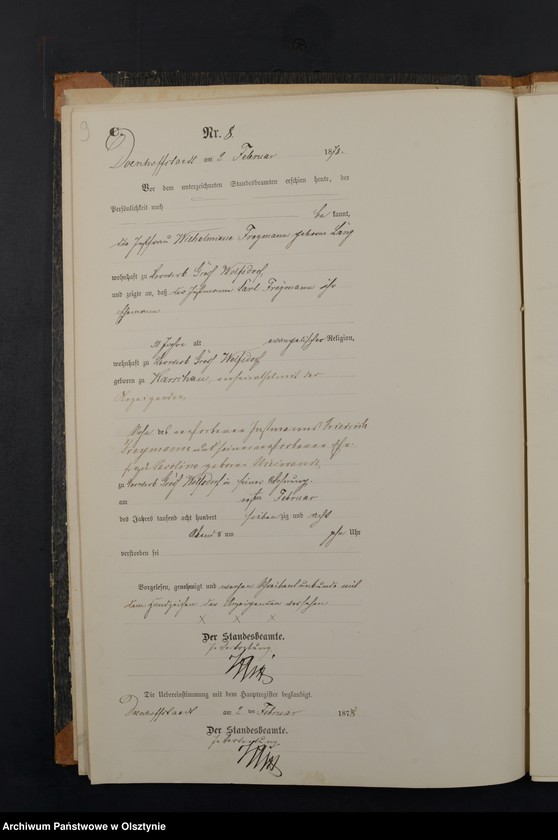 9
C.
Nr. 8.
Doenhoffstaedt am 2 Februar 1878.
Vor dem unterzeichneten Standesbeamten erschien heute, der
Persönlichkeit nach
be kannt,
die Instfrau Wilhelmine Freymann geborne Lang
wohnhaft zu Vorwerk Groß Wolfsdorf
und zeigte an, daß der Instmann Carl Freymann ihr
Ehemann
Jahre alt evangelischer Religion,
wohnhaft zu Vorwerk Groß Wolfsdorf
geboren zu verheirathet mit der
Anzeigenden,
Sohn des verstorbenen Instmanns Friedrich
Freymann und seiner verstorbenen Ehe-
frau Caroline geborne
zu Vorwerk Groß Wolfsdorf in seiner Wohnung
am ersten Februar
des Jahres tausend acht hundert sieben zig und acht
Abends um Uhr
verstorben sei
Vorgelesen, genehmigt und wegen Schreibensunkunde mit
dem Handzeichen der Anzeigenden versehen
X X X
Der Standesbeamte.
In Vertretung
Die Uebereinstimmung mit dem Hauptregister beglaubigt.
Doenhoffstaedt am 2 ten Februar 1878
Der Standesbeamte.
In Vertretung
Archiwum Państwowe w Olsztynie